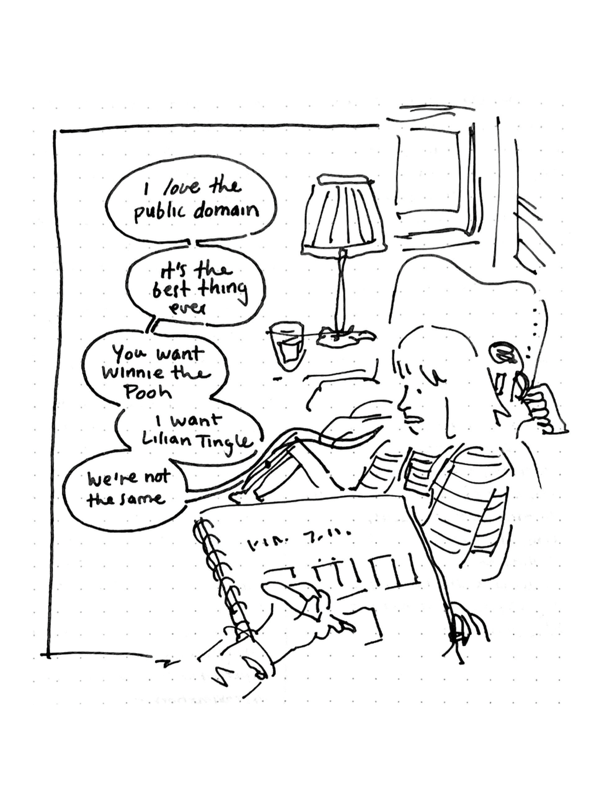 I love the
public domain
it's the
best thing
ever
You want
Winnie the
Pooh
I want
Lilian Tingle
We're not
the same